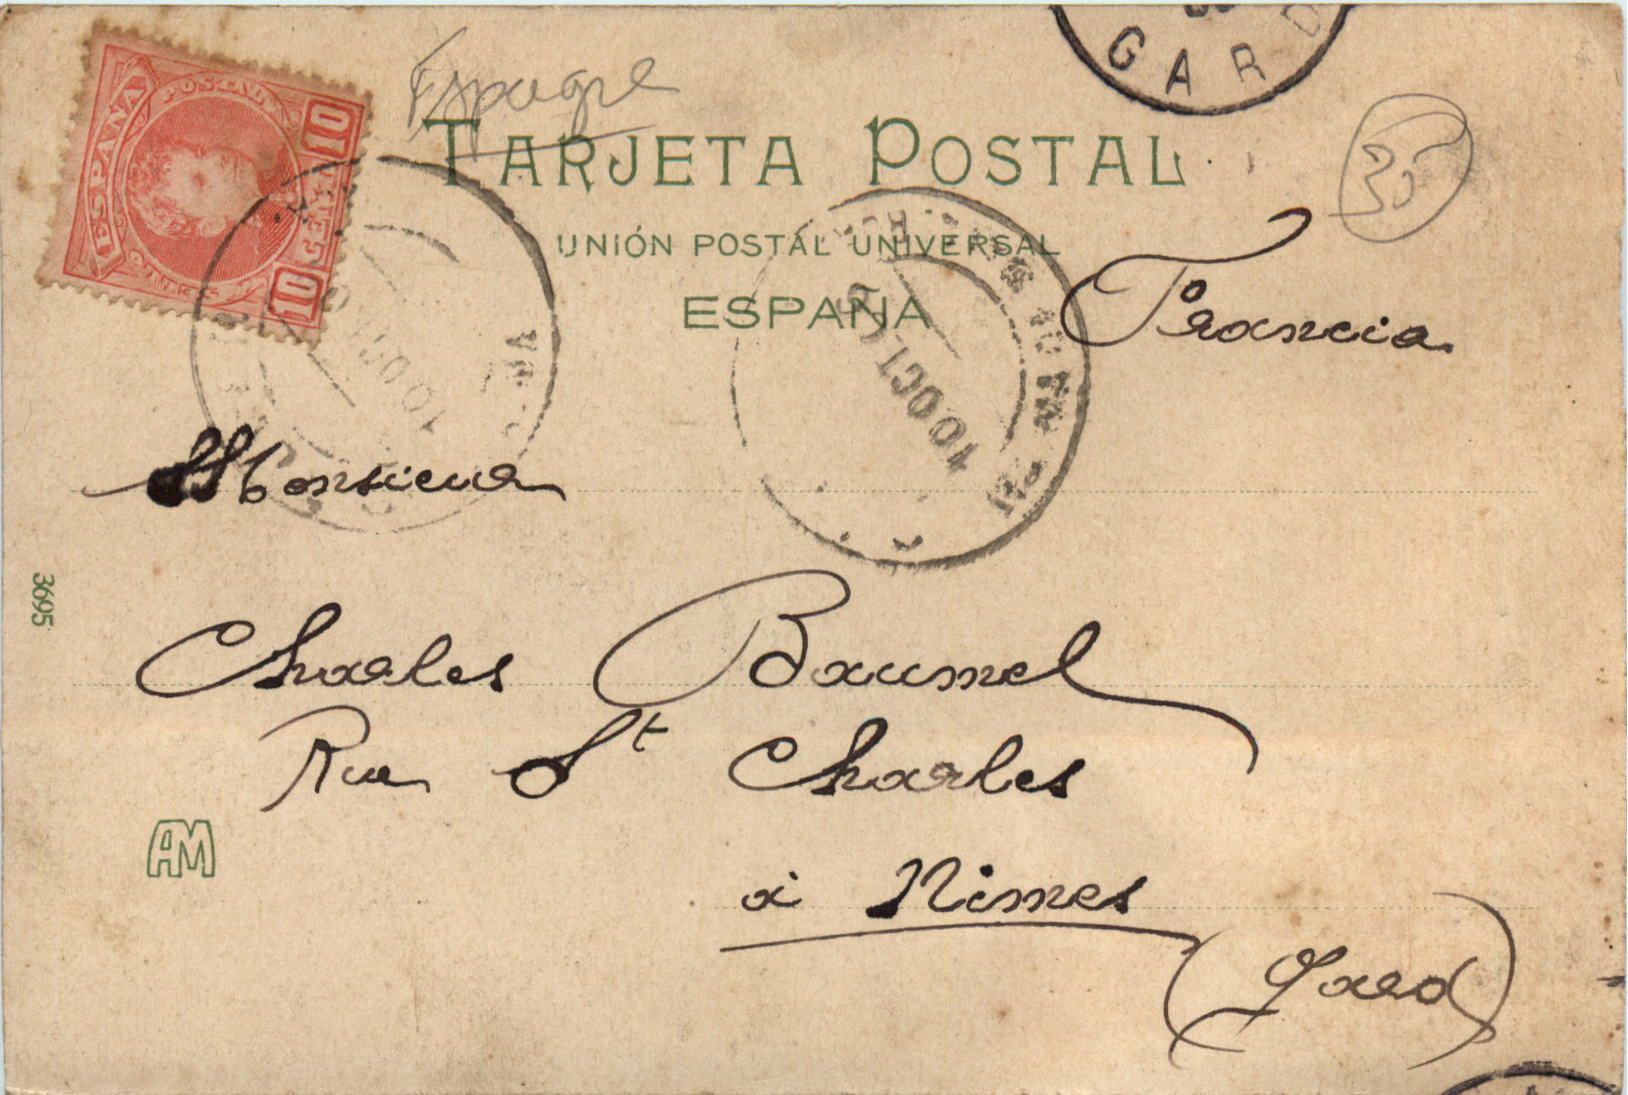 Espagne
GARD
TARJETA POSTAL
35
UNIÓN POSTAL UNIVERSAL
ESPAÑA
Francia
ESPAÑA
POSTAL
10
10
10 OCT
10 OCT
Monsieur
Charles Baumel
Rue St Charles
à Nimes
(Gard)
3695
AM